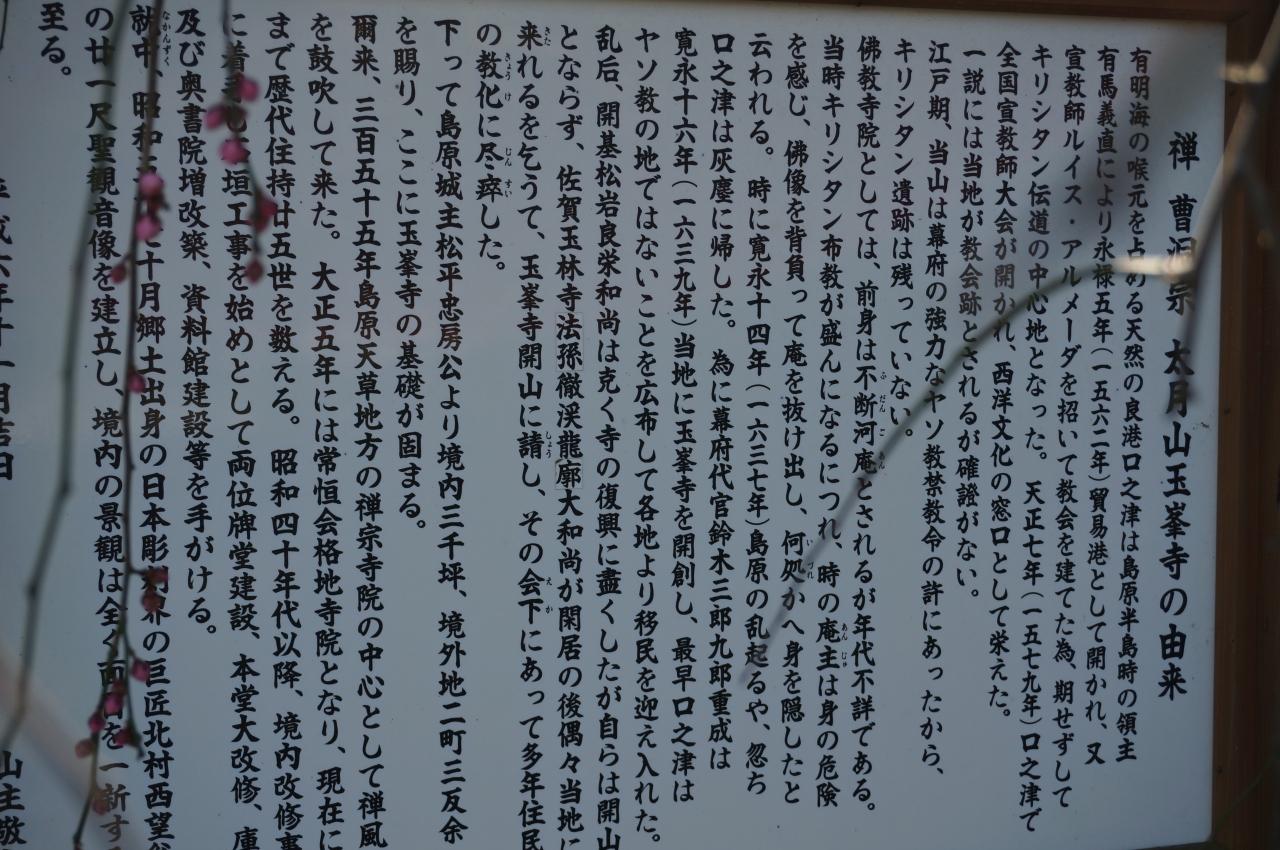 禅 曹洞宗 太月山玉峯寺の由来
有明海の喉元を占める天然の良港口之津は島原半島時の領主
有馬義直により永禄五年(一五六二年)貿易港として開かれ、又
宣教師ルイス・アルメーダを招いて教会を建てた為、期せずして
キリシタン伝道の中心地となった。天正七年(一五七九年)口之津で
全国宣教師大会が開かれ、西洋文化の窓口として栄えた。
一説には当地が教会跡とされるが確證がない。
江戸期、当山は幕府の強力なヤソ教禁教令の許にあったから、
キリシタン遺跡は残っていない。
佛教寺院としては、前身は不断河庵とされるが年代不詳である。
当時キリシタン布教が盛んになるにつれ、時の庵主は身の危険
を感じ、佛像を背負って庵を抜け出し、何処かへ身を隠したと
云われる。時に寛永十四年(一六三七年)島原の乱起るや、忽ち
口之津は灰塵に帰した。為に幕府代官鈴木三郎九郎重成は
寛永十六年(一六三九年)当地に玉峯寺を開創し、最早口之津は
ヤソ教の地ではないことを広布して各地より移民を迎え入れた。
乱后、開基松岩良栄和尚は克く寺の復興に盡くしたが自らは開山
とならず、佐賀玉林寺法孫徹渓龍廓大和尚が閑居の後偶々当地に
来れるを乞うて、玉峯寺開山に請し、その会下にあって多年住民
の教化に尽瘁した。
下って島原城主松平忠房公より境内三千坪、境外地二町三反余
を賜り、ここに玉峯寺の基礎が固まる。
爾来、三百五十五年島原天草地方の禅宗寺院の中心として禅風
を鼓吹して来た。大正五年には常恒会格地寺院となり、現在に
まで歴代住持廿五世を数える。昭和四十年代以降、境内改修事
に着手石垣工事を始めとして両位牌堂建設、本堂大改修、庫
及び奥書院増改築、資料館建設等を手がける。
就中、昭和 十月郷土出身の日本彫刻界の巨匠北村西望
の廿一尺聖観音像を建立し、境内の景観は全く面目を一新する
至る。
平成六年十一月吉日
山主敬